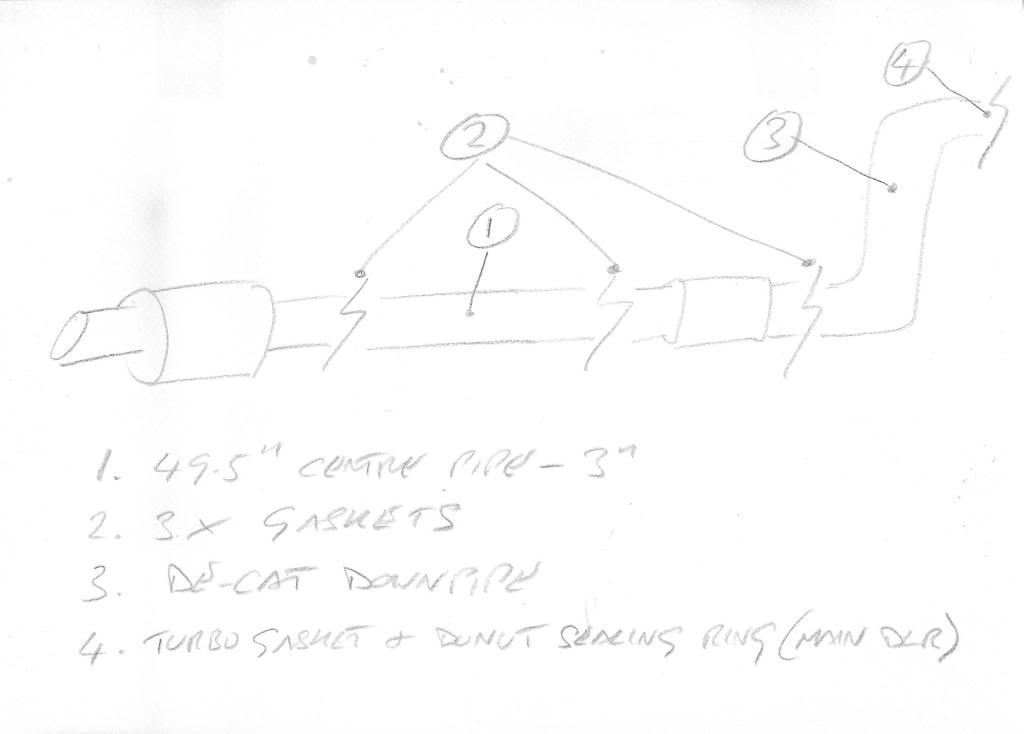 4
2
3
1
1. 49.5" CENTRE PIPE - 3"
2. 3X GASKETS
3. DE-CAT DOWNPIPE
4. TURBO GASKET + DONUT SEALING RING (MAIN DLR)